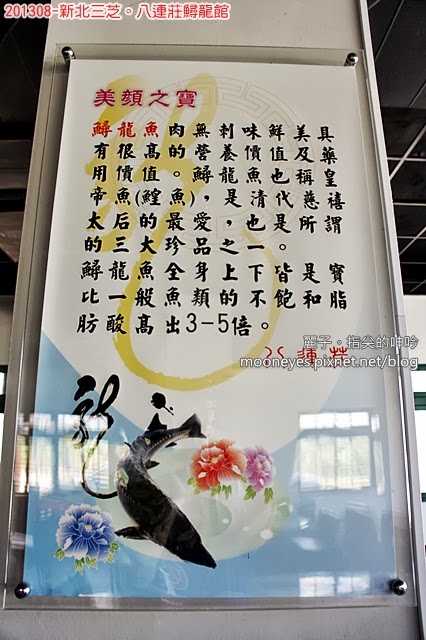 201308-新北三芝。八連莊鱘龍館
美顏之寶
鱘龍魚肉無刺味鮮美具
有很高的營養價值及藥
用價值。鱘龍魚也稱皇
帝魚(鰉魚)，是清代慈禧
太后的最愛，也是所謂
的三大珍品之一。
鱘龍魚全身上下皆是寶
比一般魚類的不飽和脂
肪酸高出3-5倍。
八連莊
麗子。指尖的呻吟
mooneyes.pixnet.net/blog
龍